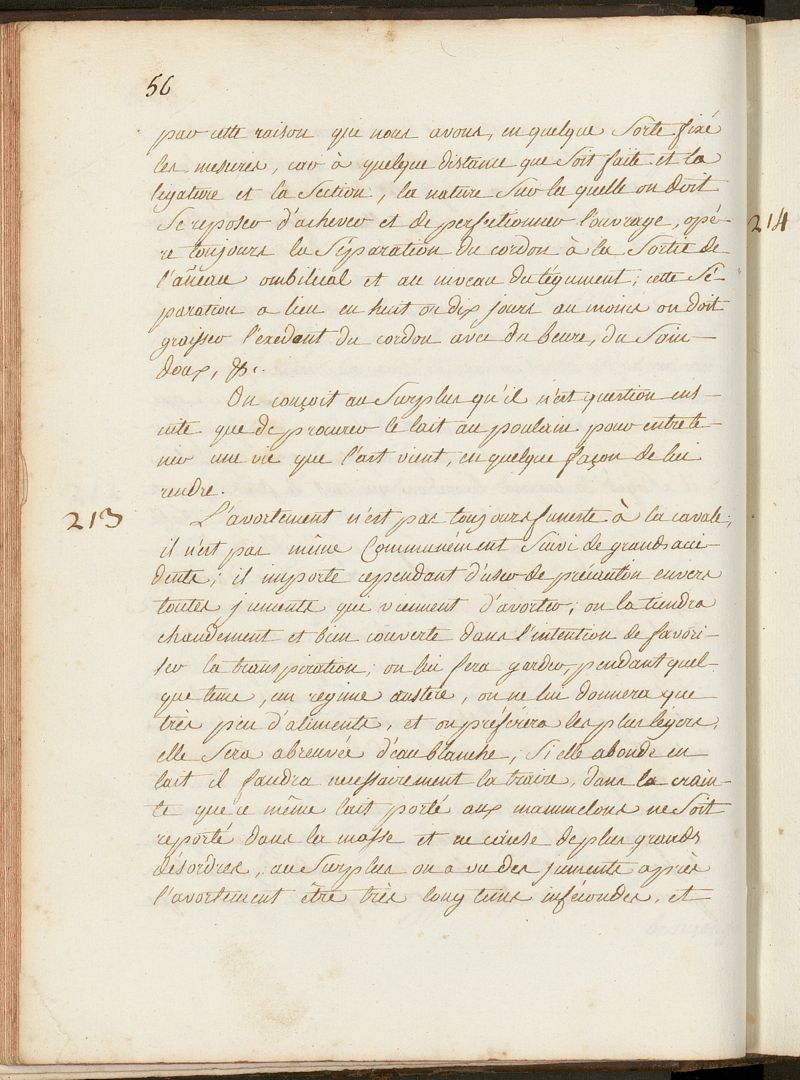 56
par cette raison que nous avons, en quelque Sorte fixé
les mesures, car à quelque distance que Soit faite et la
ligature et la Section, la nature Sur la quelle on doit
Se reposer d'achever et de perfectionner l'ouvrage, opé-
re toujours la Séparation du cordon à la Sortie de
l'añeau ombilical et au niveau du tégument; cette Sé-
paration a lieu en huit ou dix jours au moins on doit
graisser l'exedant du cordon avec du beure, du Soin-
doux, &c.
On conçoit au Surplus qu'il n'est question ens-
uite que de procurer le lait au poulain pour entrete-
nir une vie que l'art vient, en quelque façon de lui
rendre.
213
L'avortement n'est pas toujours funeste à la cavale;
il n'est pas même Communément Suivi de grands acci-
dents; il importe cependant d'user de précaution envers
toutes juments qui viennent d'avorter; on la tiendra
chaudement et bien couverte dans l'intention de favori-
ser la transpiration; on lui fera garder, pendant quel-
que tems, un regime austère, on ne lui donnera que
très peu d'aliments, et on préférera les plus légers,
elle Sera abreuvée d'eau blanche; Si elle abonde en
lait il faudra necessairement la traire, dans la crain-
te que ce même lait porté aux mammelons ne Soit
reporté dans la masse et ne cause de plus grands
désordres, au Surplus on a vu des juments après
l'avortement être très long tems infécondes, et
214